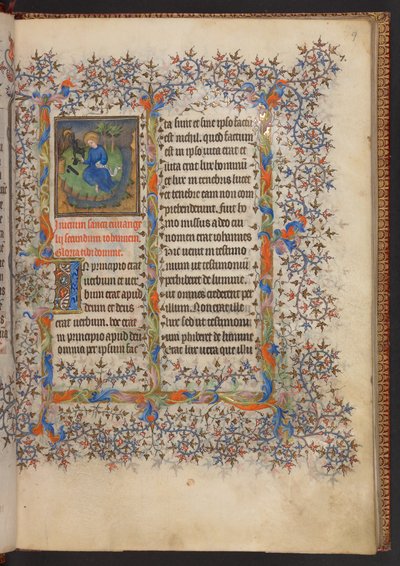 9
Inicium sancti euuange
lij secundum iohannem
Gloria tibi domine.
IN principio erat
uerbum et uer
bum erat apud
deum et deus
erat uerbum. hoc erat
in principio apud deu
omnia per ipsum fac
ta sunt et sine ipso factu
est nichil. quod factum
est in ipso uita erat et
uita erat lux hominu
et lux in tenebris lucet
et tenebre eam non com
prehenderunt. Fuit ho
mo missus a deo cui
nomen erat iohannes
hic uenit in testimo
nium ut testimoniu
perhiberet de lumine.
ut omnes crederent per
illum. Non erat ille
lux sed ut testimoni
um phiberet de lumine
Erat lux uera que illu